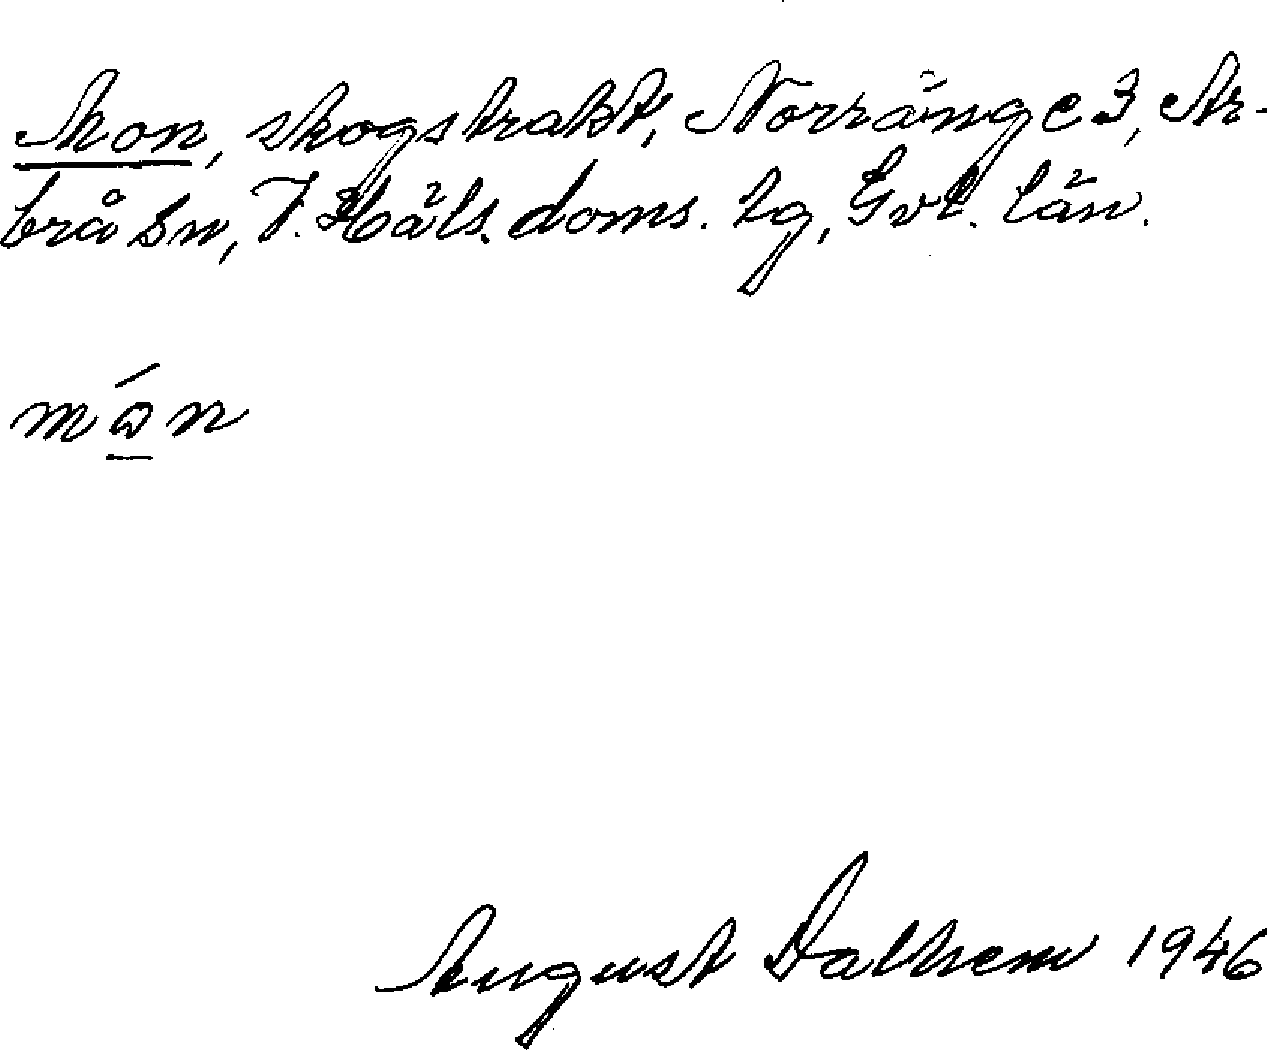 Mon, skogstrakt, Norränge 3, Ar-
brå sn, V. Häls. doms. tg, Gvl. län.
mǫ́n
August Dalhem 1946